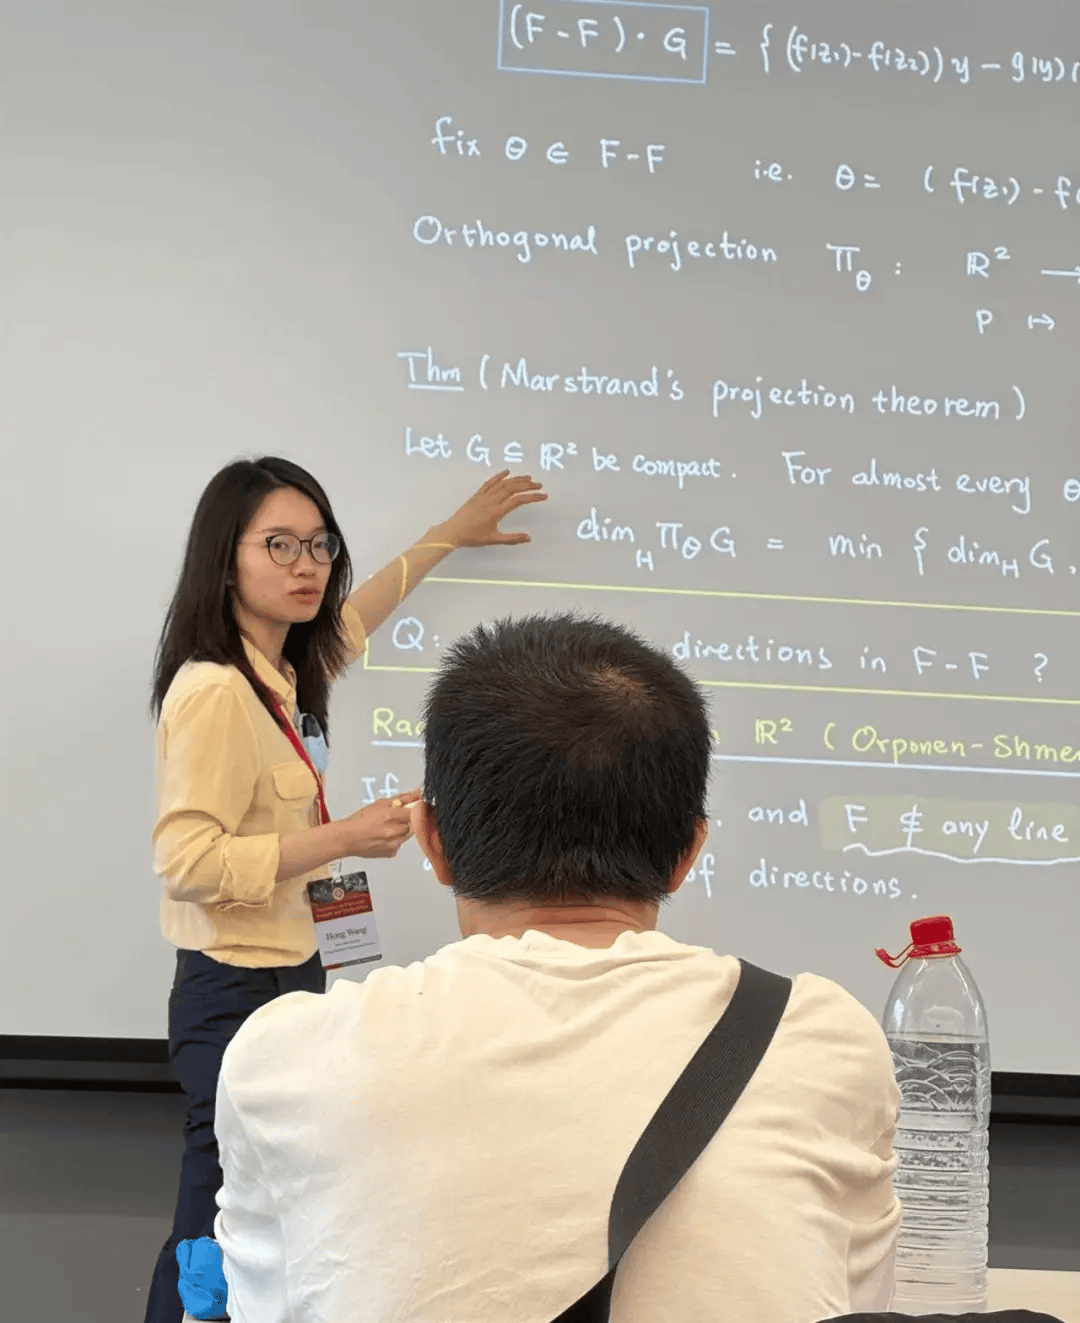 (F-F)·G = { (f(z₁)-f(z₂))y - g(y)(
fix θ ∈ F-F i.e. θ = (f(z₁) - f(
Orthogonal projection π_θ : ℝ² →
p ↦
Thm (Marstrand's projection theorem)
Let G ⊆ ℝ² be compact. For almost every θ
dim_H π_θ G = min { dim_H G,
Q: directions in F-F ?
ℝ² (Orponen-Shme
If , and F ⊄ any line
of directions.
Hong Wang